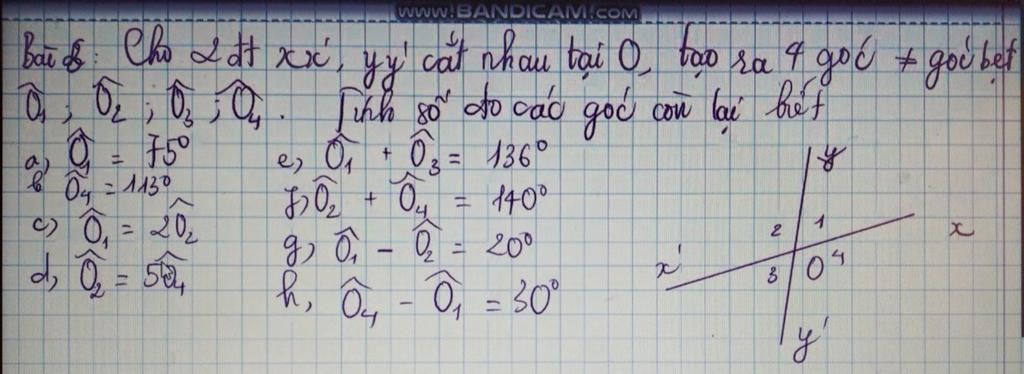 www.BANDICAM.com
Bài 8: Cho 2 đt xx', yy' cắt nhau tại O, tạo ra 4 góc ≠ góc bẹt
Ô1 ; Ô2 ; Ô3 ; Ô4 . Tính số đo các góc còn lại biết
a, Ô1 = 75°
b, Ô4 = 113°
c) Ô1 = 2Ô2
d, Ô2 = 5Ô4
e, Ô1 + Ô3 = 136°
f, Ô2 + Ô4 = 140°
g) Ô1 - Ô2 = 20°
h, Ô4 - Ô1 = 30°
y
2 1 x
x' 3 O 4
y'